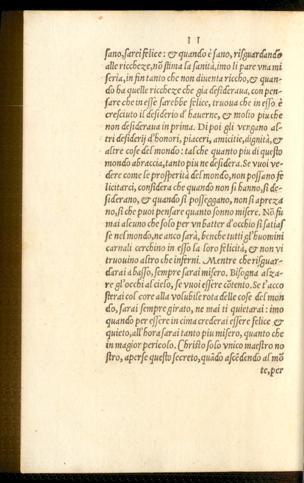 11
sano, sarei felice: & quando è sano, risguardando
alle ricchezze, nõ stima la sanità, imo li pare vna mi
seria, in fin tanto che non diuenta riccho, & quan-
do ha quelle ricchezze che gia desideraua, con pen-
sare che in esse sarebbe felice, truoua che in esso è
cresciuto il desiderio d'hauerne, & molto piu che
non desideraua in prima. Di poi gli vengano al-
tri desiderij d'honori, piaceri, amicitie, dignità, &
altre cose del mondo: tal che quanto piu di questo
mondo abraccia, tanto piu ne desidera. Se vuoi ve-
dere come le prosperità del mondo, non possano fe
licitarci, considera che quando non si hanno, si de-
siderano, & quando si posseggano, non si apreza
no, sì che puoi pensare quanto sonno misere. Nõ fu
mai alcuno che solo per vn batter d'occhio si satias
se nel mondo, ne anco sarà, benche tutti gl'huomini
carnali cerchino in esso la loro felicità, & non vi
truouino altro che inferni. Mentre che risguar-
darai a basso, sempre sarai misero. Bisogna alza-
re gl'occhi al cielo, se vuoi essere cõtento. Se t'acco
sterai col core alla volubile rota delle cose del mon
do, sarai sempre girato, ne mai ti quietarai: imo
quando per essere in cima crederai essere felice &
quieto, all'hora sarai tanto piu misero, quanto che
in magior pericolo. Christo solo vnico maestro no
stro, aperse questo secreto, quãdo ascẽdendo al mõ
te, per